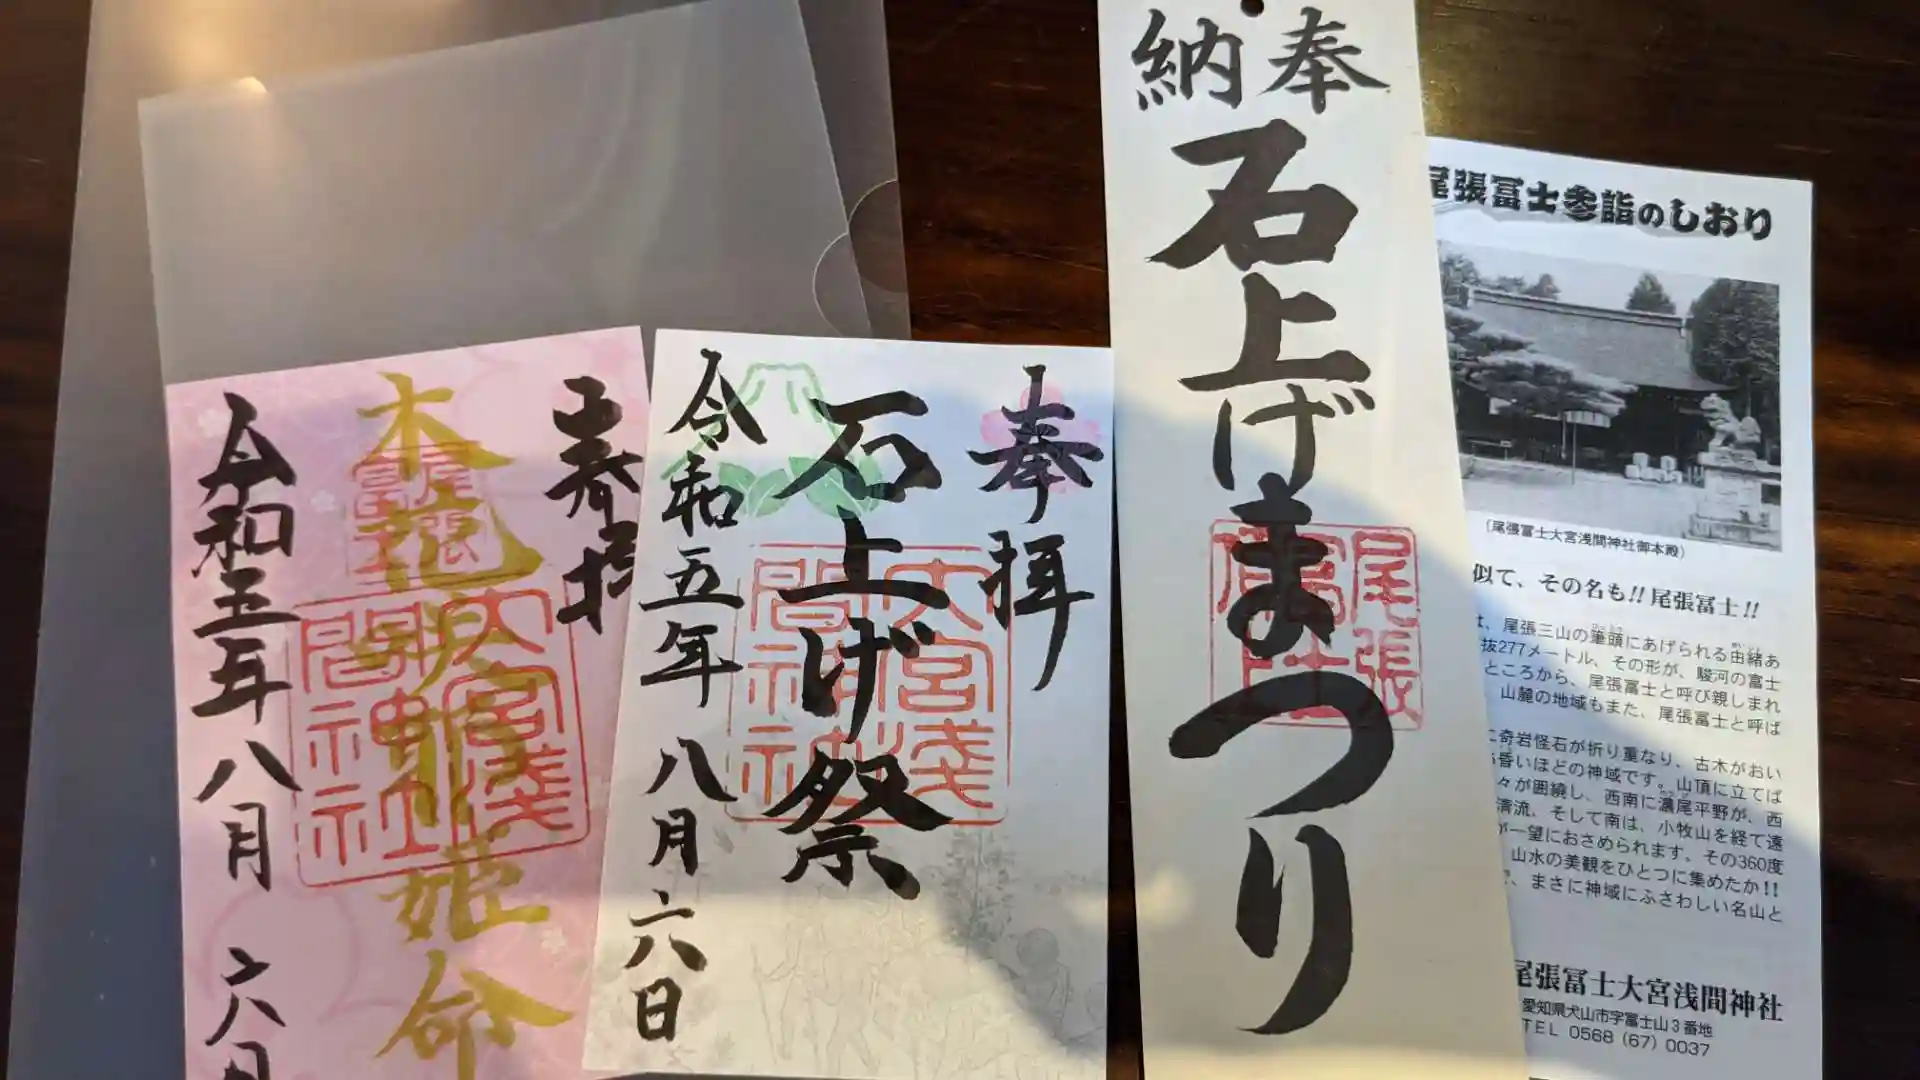 奉拝
木花開耶姫命
令和五年八月六日
尾張冨士
大宮浅間神社
奉拝
石上げ祭
令和五年八月六日
大宮浅間神社
奉納
石上げまつり
尾張冨士
尾張冨士参詣のしおり
(尾張冨士大宮浅間神社御本殿)
似て、その名も!!尾張冨士!!
、尾張三山の筆頭にあげられる由緒あ
抜277メートル、その形が、駿河の富士
ところから、尾張冨士と呼び親しまれ
山麓の地域もまた、尾張冨士と呼ば
に奇岩怪石が折り重なり、古木がおい
昏いほどの神域です。山頂に立てば
々が囲繞し、西南に濃尾平野が、西
清流、そして南は、小牧山を経て遠
が一望におさめられます、その360度
山水の美観をひとつに集めたか!!
、まさに神域にふさわしい名山と
尾張冨士大宮浅間神社
愛知県犬山市字冨士山3番地
TEL 0568 (67) 0037